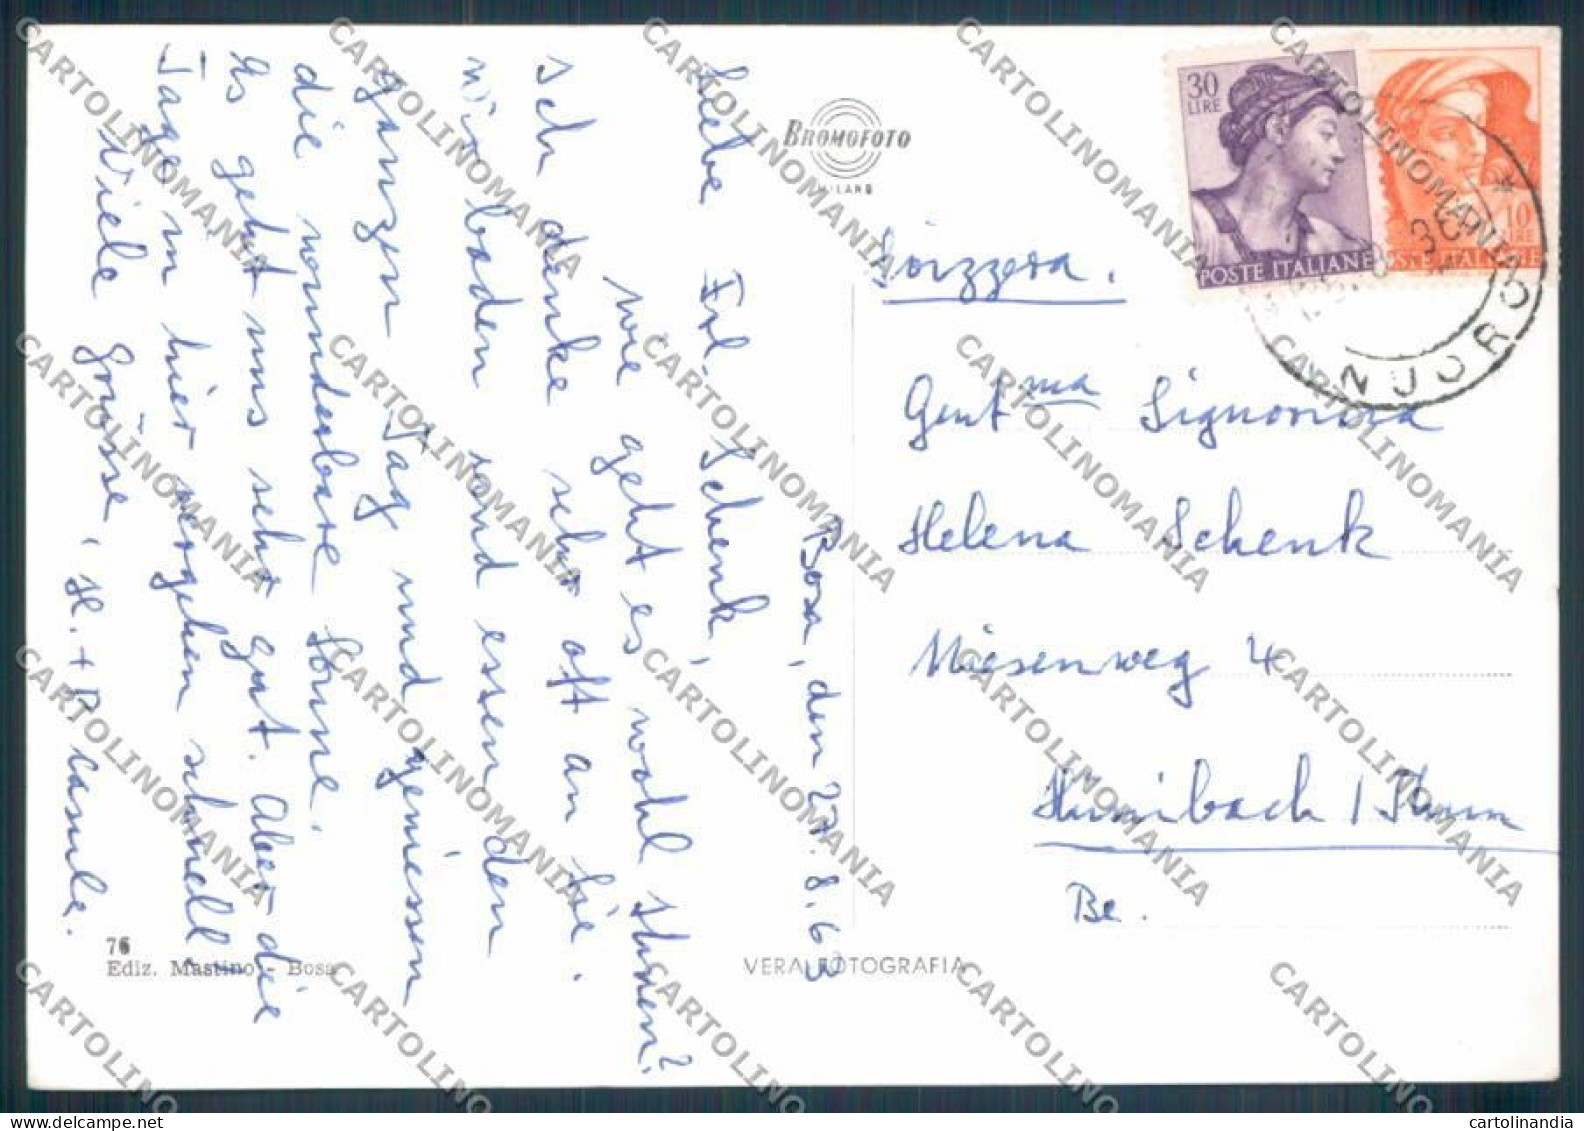 Bosa, den 27.8.63
Liebe Frl. Schenk,
wie geht es wohl Ihnen?
Ich denke sehr oft an Sie.
Wir baden und essen den
ganzen Tag und geniessen
die wunderbare Sonne.
Es geht uns sehr gut. Aber die
Tage in hier vergehen schnell
Viele Grüsse, H. + P. Casule.
76
Ediz. Mastino - Bosa
BROMOFOTO
MILANO
VERA FOTOGRAFIA
30
LIRE
POSTE ITALIANE
10
LIRE
POSTE ITALIANE
NUORO
Svizzera.
Gent ma Signorina
Helena Schenk
Niesenweg 4
Hünibach / Thun
Be.
CARTOLINOMANIA
cartolinandia